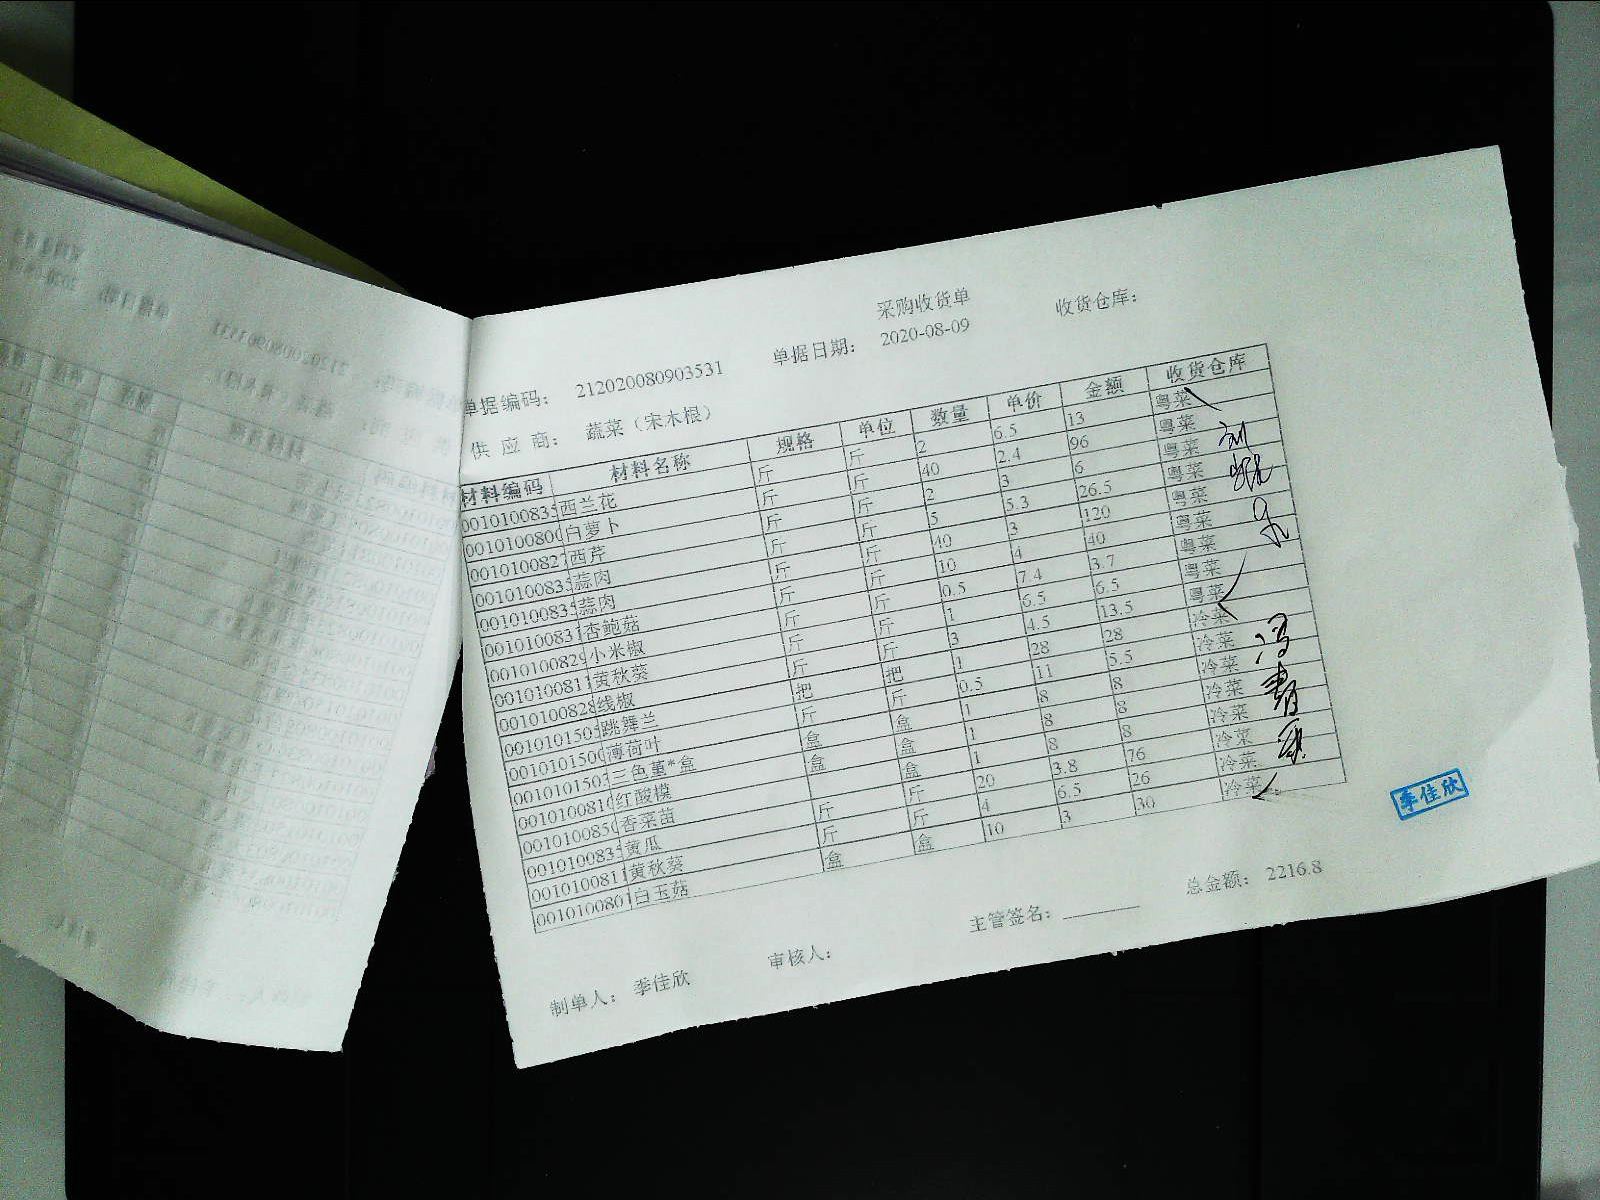 采购收货单
单据编码： 212020080903531 单据日期： 2020-08-09 收货仓库：
供 应 商： 蔬菜（宋木根）
材料编码 材料名称 规格 单位 数量 单价 金额 收货仓库
001010083 西兰花 斤 斤 2 6.5 13 粤菜
001010080 白萝卜 斤 斤 40 2.4 96 粤菜
001010082 西芹 斤 斤 2 3 6 粤菜
001010083 蒜肉 斤 斤 5 5.3 26.5 粤菜
001010083 蒜肉 斤 斤 40 3 120 粤菜
001010083 杏鲍菇 斤 斤 10 4 40 粤菜
001010082 小米椒 斤 斤 0.5 7.4 3.7 粤菜
001010081 黄秋葵 斤 斤 1 6.5 6.5 粤菜
001010082 线椒 斤 斤 3 4.5 13.5 粤菜
001010150 跳舞兰 把 把 1 28 28 冷菜
001010150 薄荷叶 斤 斤 0.5 11 5.5 冷菜
001010150 三色堇*盒 盒 盒 1 8 8 冷菜
001010081 红酸模 盒 盒 1 8 8 冷菜
001010085 香菜苗 盒 1 8 8 冷菜
001010083 黄瓜 斤 斤 20 3.8 76 冷菜
001010081 黄秋葵 斤 斤 4 6.5 26 冷菜
001010080 白玉菇 盒 盒 10 3 30 冷菜
季佳欣
总金额： 2216.8
制单人： 季佳欣 审核人： 主管签名：